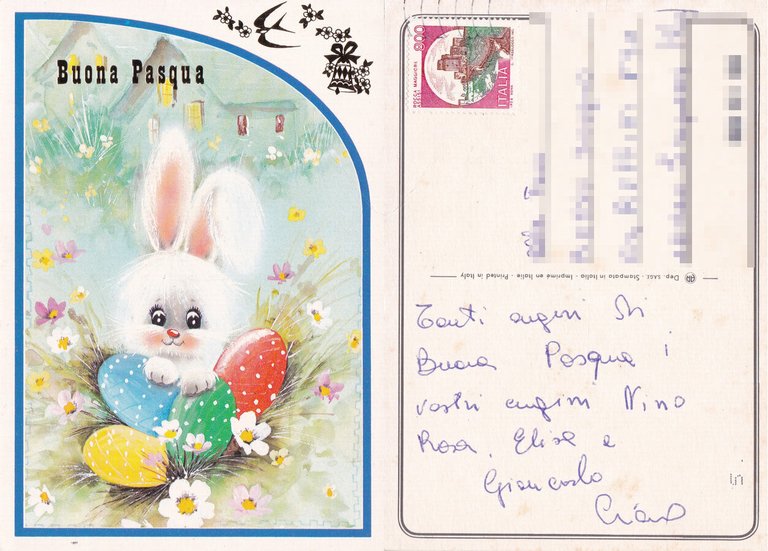 Buona Pasqua
800
ROCCA MAGGIORE
ITALIA
Dep. SAGE - Stampato in Italia - Imprimé en Italie - Printed in Italy
Tanti auguri di
Buona Pasqua i
vostri cugini Nino
Rosa, Elisa e
Giancarlo
Ciao